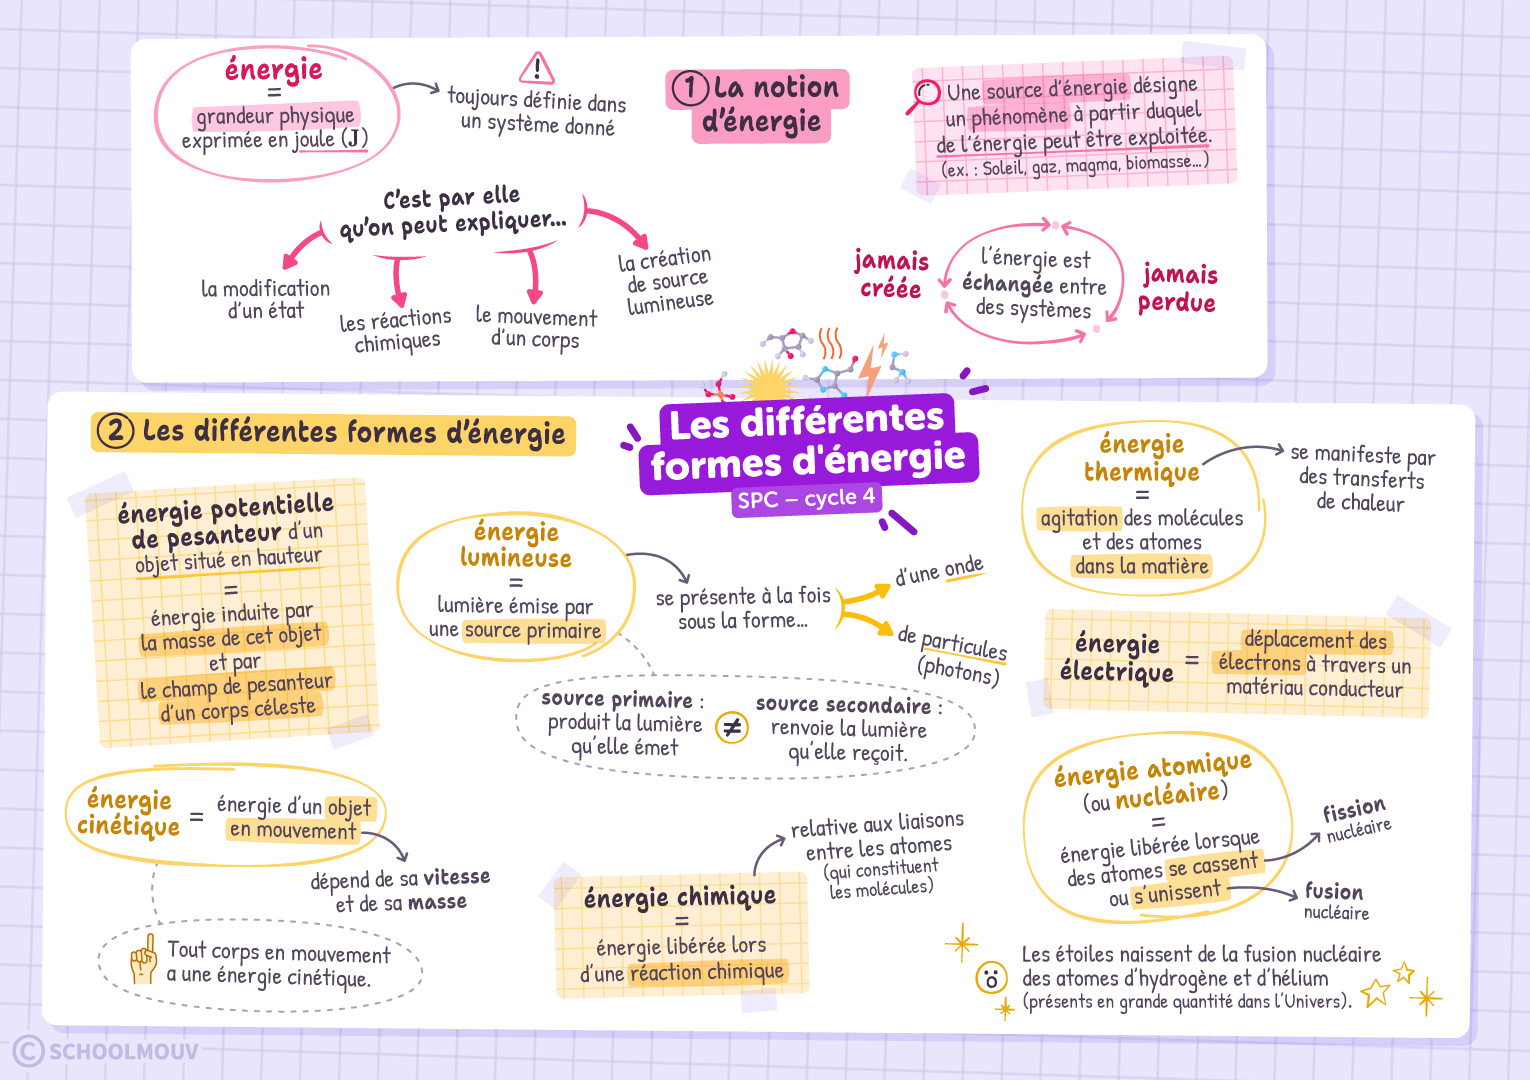 énergie
=
grandeur physique
exprimée en joule (J)
toujours définie dans
un système donné
① La notion
d'énergie
Une source d'énergie désigne
un phénomène à partir duquel
de l'énergie peut être exploitée.
(ex. : Soleil, gaz, magma, biomasse...)
C'est par elle
qu'on peut expliquer...
la modification
d'un état
les réactions
chimiques
le mouvement
d'un corps
la création
de source
lumineuse
jamais
créée
l'énergie est
échangée entre
des systèmes
jamais
perdue
Les différentes
formes d'énergie
SPC – cycle 4
② Les différentes formes d'énergie
énergie potentielle
de pesanteur d'un
objet situé en hauteur
=
énergie induite par
la masse de cet objet
et par
le champ de pesanteur
d'un corps céleste
énergie
lumineuse
=
lumière émise par
une source primaire
se présente à la fois
sous la forme...
d'une onde
de particules
(photons)
source primaire :
produit la lumière
qu'elle émet
≠
source secondaire :
renvoie la lumière
qu'elle reçoit.
énergie
thermique
=
agitation des molécules
et des atomes
dans la matière
se manifeste par
des transferts
de chaleur
énergie
électrique
=
déplacement des
électrons à travers un
matériau conducteur
énergie
cinétique
=
énergie d'un objet
en mouvement
dépend de sa vitesse
et de sa masse
Tout corps en mouvement
a une énergie cinétique.
énergie chimique
=
énergie libérée lors
d'une réaction chimique
relative aux liaisons
entre les atomes
(qui constituent
les molécules)
énergie atomique
(ou nucléaire)
=
énergie libérée lorsque
des atomes se cassent
ou s'unissent
fission
nucléaire
fusion
nucléaire
Les étoiles naissent de la fusion nucléaire
des atomes d'hydrogène et d'hélium
(présents en grande quantité dans l'Univers).
© SCHOOLMOUV